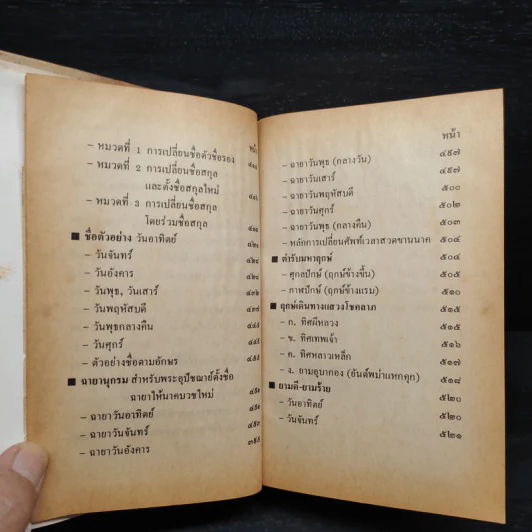 หน้า
- หมวดที่ 1 การเปลี่ยนชื่อตัวชื่อรอง
- หมวดที่ 2 การเปลี่ยนชื่อสกุล
และตั้งชื่อสกุลใหม่
- หมวดที่ 3 การเปลี่ยนชื่อสกุล
โดยร่วมชื่อสกุล
■ ชื่อตัวอย่าง วันอาทิตย์
- วันจันทร์
- วันอังคาร
- วันพุธ, วันเสาร์
- วันพฤหัสบดี
- วันพุธกลางคืน
- วันศุกร์
- ตัวอย่างชื่อตามอักษร
■ ฉายานุกรม สำหรับพระอุปัชฌาย์ตั้งชื่อ
ฉายาให้นาคบวชใหม่
- ฉายาวันอาทิตย์
- ฉายาวันจันทร์
- ฉายาวันอังคาร
หน้า
- ฉายาวันพุธ (กลางวัน) ๔๙๗
- ฉายาวันเสาร์ ๔๙๗
- ฉายาวันพฤหัสบดี ๕๐๐
- ฉายาวันศุกร์ ๕๐๒
- ฉายาวันพุธ (กลางคืน) ๕๐๓
- หลักการเปลี่ยนศัพท์เวลาสวดขานนาค ๕๐๔
■ ตำรับมหาฤกษ์ ๕๐๔
- ศุกลปักษ์ (ฤกษ์ข้างขึ้น) ๕๐๕
- กาฬปักษ์ (ฤกษ์ข้างแรม) ๕๑๐
■ ฤกษ์เดินทางแสวงโชคลาภ ๕๑๕
- ก. ทิศผีหลวง ๕๑๕
- ข. ทิศเทพเจ้า ๕๑๖
- ค. ทิศหลาวเหล็ก ๕๑๗
- ง. ยามอุบากอง (ยันต์พม่าแหกคุก) ๕๑๘
■ ยามดี-ยามร้าย ๕๒๐
- วันอาทิตย์ ๕๒๐
- วันจันทร์ ๕๒๑